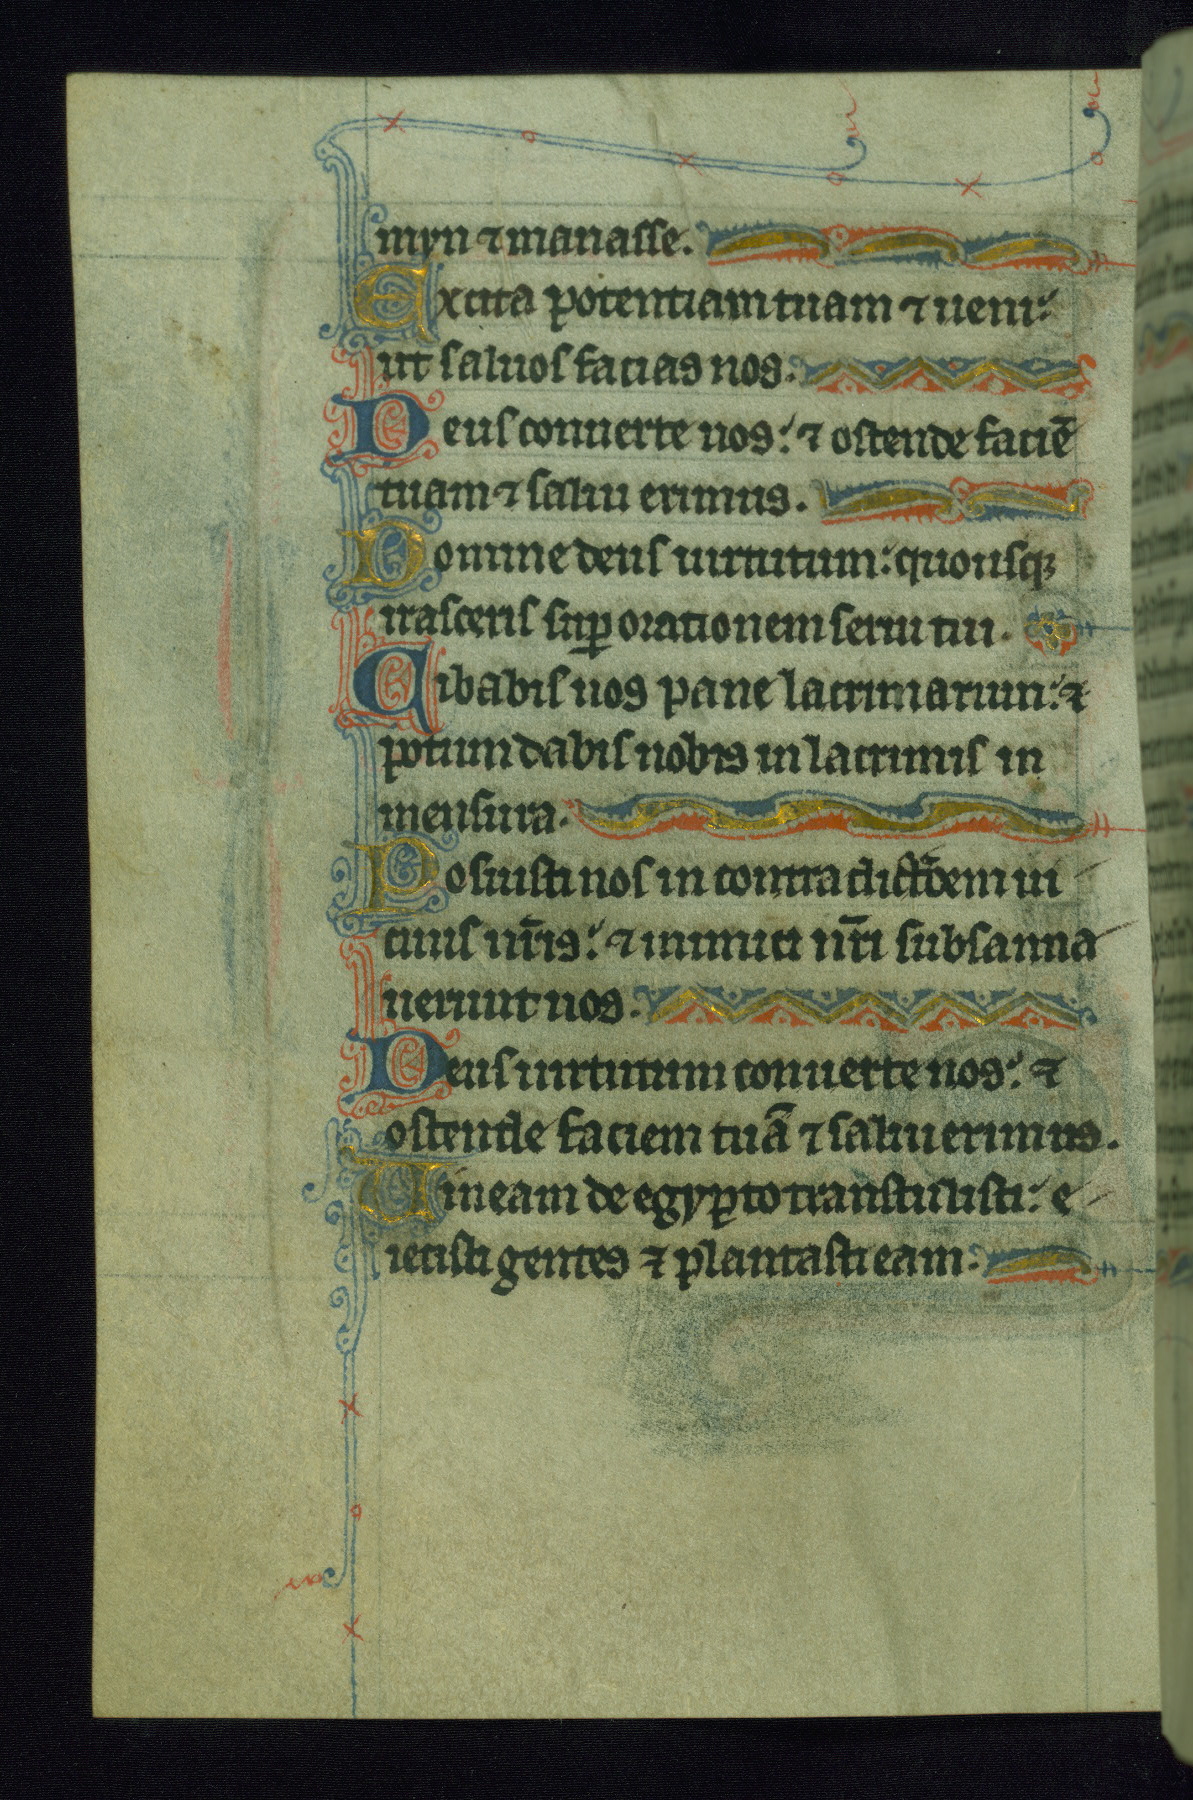 myn ⁊ manasse.
Excita potentiam tuam ⁊ ueni:
ut saluos facias nos.
Deus conuerte nos: ⁊ ostende faciē
tuam ⁊ salui erimus.
Domine deus uirtutum: quousqꝫ
irasceris suꝑ orationem serui tui.
Cibabis nos pane lacrimarum: ⁊
potum dabis nobis in lacrimis in
mensura.
Posuisti nos in contradictōem ui
cinis nr̄is: ⁊ inimici nr̄i subsanna
uerunt nos.
Deus uirtutum conuerte nos: ⁊
ostende faciem tuā ⁊ salui erimus.
Uineam de egypto transtulisti: e
iecisti gentes ⁊ plantasti eam.